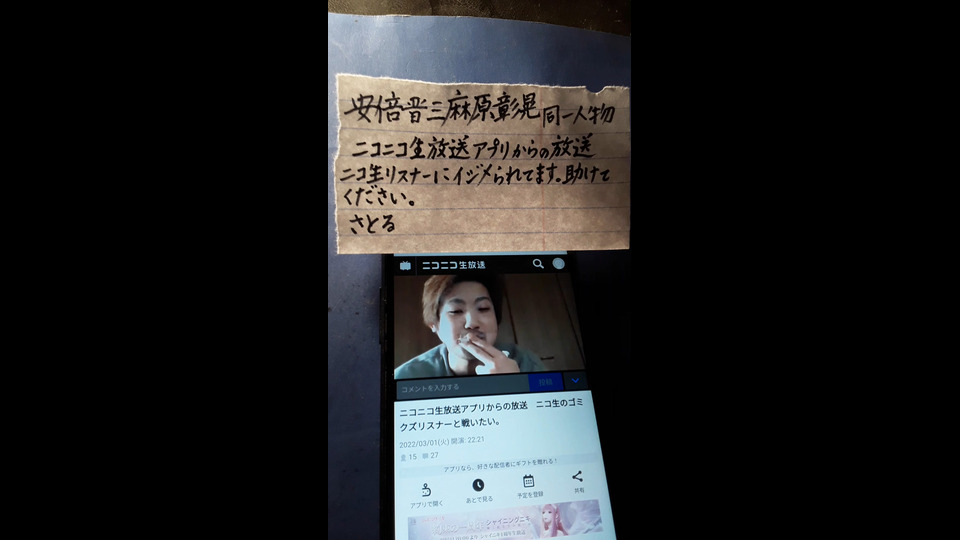 安倍晋三麻原彰晃同一人物
ニコニコ生放送アプリからの放送
ニコ生リスナーにイジメられてます。助けて
ください。
さとる
ニコニコ生放送
コメントを入力する
投稿
ニコニコ生放送アプリからの放送 ニコ生のゴミ
クズリスナーと戦いたい。
2022/03/01(火) 開演: 22:21
15 27
アプリなら、好きな配信者にギフトを贈れる!
アプリで開く
あとで見る
予定を登録
共有
シャイニングニキ